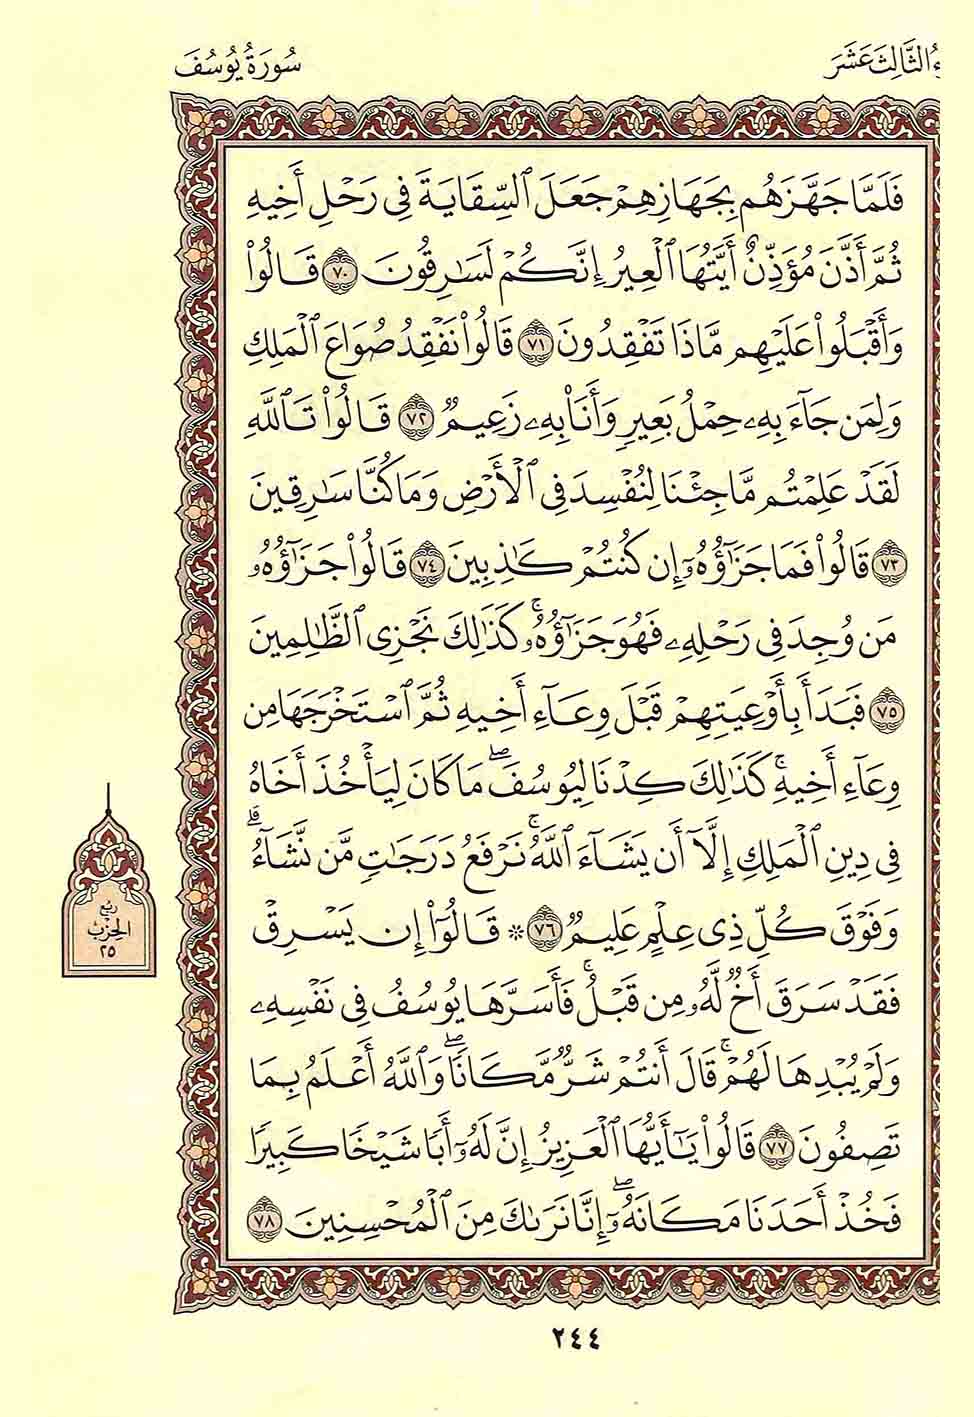 ءُ الثَّالِثَ عَشَرَ
سُورَةُ يُوسُفَ
فَلَمَّا جَهَّزَهُم بِجَهَازِهِمْ جَعَلَ ٱلسِّقَايَةَ فِى رَحْلِ أَخِيهِ
ثُمَّ أَذَّنَ مُؤَذِّنٌ أَيَّتُهَا ٱلْعِيرُ إِنَّكُمْ لَسَٰرِقُونَ ٧٠ قَالُوا۟
وَأَقْبَلُوا۟ عَلَيْهِم مَّاذَا تَفْقِدُونَ ٧١ قَالُوا۟ نَفْقِدُ صُوَاعَ ٱلْمَلِكِ
وَلِمَن جَآءَ بِهِۦ حِمْلُ بَعِيرٍ وَأَنَا۠ بِهِۦ زَعِيمٌ ٧٢ قَالُوا۟ تَٱللَّهِ
لَقَدْ عَلِمْتُم مَّا جِئْنَا لِنُفْسِدَ فِى ٱلْأَرْضِ وَمَا كُنَّا سَٰرِقِينَ
٧٣ قَالُوا۟ فَمَا جَزَٰٓؤُهُۥٓ إِن كُنتُمْ كَٰذِبِينَ ٧٤ قَالُوا۟ جَزَٰٓؤُهُۥ
مَن وُجِدَ فِى رَحْلِهِۦ فَهُوَ جَزَٰٓؤُهُۥ ۚ كَذَٰلِكَ نَجْزِى ٱلظَّٰلِمِينَ
٧٥ فَبَدَأَ بِأَوْعِيَتِهِمْ قَبْلَ وِعَآءِ أَخِيهِ ثُمَّ ٱسْتَخْرَجَهَا مِن
وِعَآءِ أَخِيهِ ۚ كَذَٰلِكَ كِدْنَا لِيُوسُفَ ۖ مَا كَانَ لِيَأْخُذَ أَخَاهُ
فِى دِينِ ٱلْمَلِكِ إِلَّآ أَن يَشَآءَ ٱللَّهُ ۚ نَرْفَعُ دَرَجَٰتٍ مَّن نَّشَآءُ ۗ
وَفَوْقَ كُلِّ ذِى عِلْمٍ عَلِيمٌ ٧٦ * قَالُوٓا۟ إِن يَسْرِقْ
فَقَدْ سَرَقَ أَخٌ لَّهُۥ مِن قَبْلُ ۚ فَأَسَرَّهَا يُوسُفُ فِى نَفْسِهِۦ
وَلَمْ يُبْدِهَا لَهُمْ ۚ قَالَ أَنتُمْ شَرٌّ مَّكَانًا ۖ وَٱللَّهُ أَعْلَمُ بِمَا
تَصِفُونَ ٧٧ قَالُوا۟ يَٰٓأَيُّهَا ٱلْعَزِيزُ إِنَّ لَهُۥٓ أَبًا شَيْخًا كَبِيرًا
فَخُذْ أَحَدَنَا مَكَانَهُۥٓ ۖ إِنَّا نَرَىٰكَ مِنَ ٱلْمُحْسِنِينَ ٧٨
رُبُع
الحِزْب
٢٥
٢٤٤